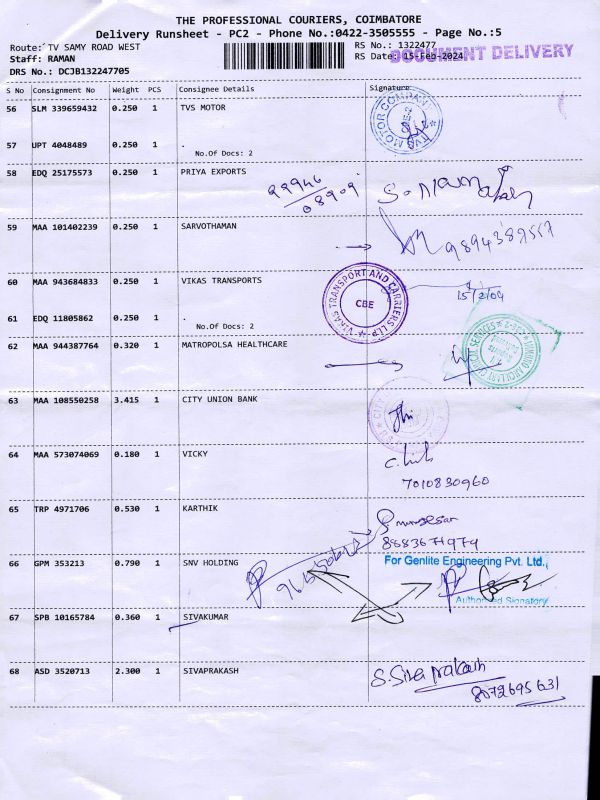 THE PROFESSIONAL COURIERS, COIMBATORE
Delivery Runsheet - PC2 - Phone No.:0422-3505555 - Page No.:5
Route: TV SAMY ROAD WEST
RS No.: 1322477
Staff: RAMAN
RS Date: 15-Feb-2024
DOCUMENT DELIVERY
DRS No.: DCJB132247705
S No Consignment No Weight PCS Consignee Details Signature
56 SLM 339659432 0.250 1 TVS MOTOR
TVS MOTOR COMPANY
57 UPT 4048489 0.250 1 .
No.Of Docs: 2
58 EDQ 25175573 0.250 1 PRIYA EXPORTS
99946
08909
59 MAA 101402239 0.250 1 SARVOTHAMAN
9894389517
60 MAA 943684833 0.250 1 VIKAS TRANSPORTS
VIKAS TRANSPORT AND CARRIERS LLP
CBE
15/2/04
61 EDQ 11805862 0.250 1 .
No.Of Docs: 2
62 MAA 944387764 0.320 1 MATROPOLSA HEALTHCARE
63 MAA 108550258 3.415 1 CITY UNION BANK
64 MAA 573074069 0.180 1 VICKY
7010830960
65 TRP 4971706 0.530 1 KARTHIK
8883671979
66 GPM 353213 0.790 1 SNV HOLDING
For Genlite Engineering Pvt. Ltd.,
Authorised Signatory
67 SPB 10165784 0.360 1 SIVAKUMAR
68 ASD 3520713 2.300 1 SIVAPRAKASH
S. Siva prakash
8072695631